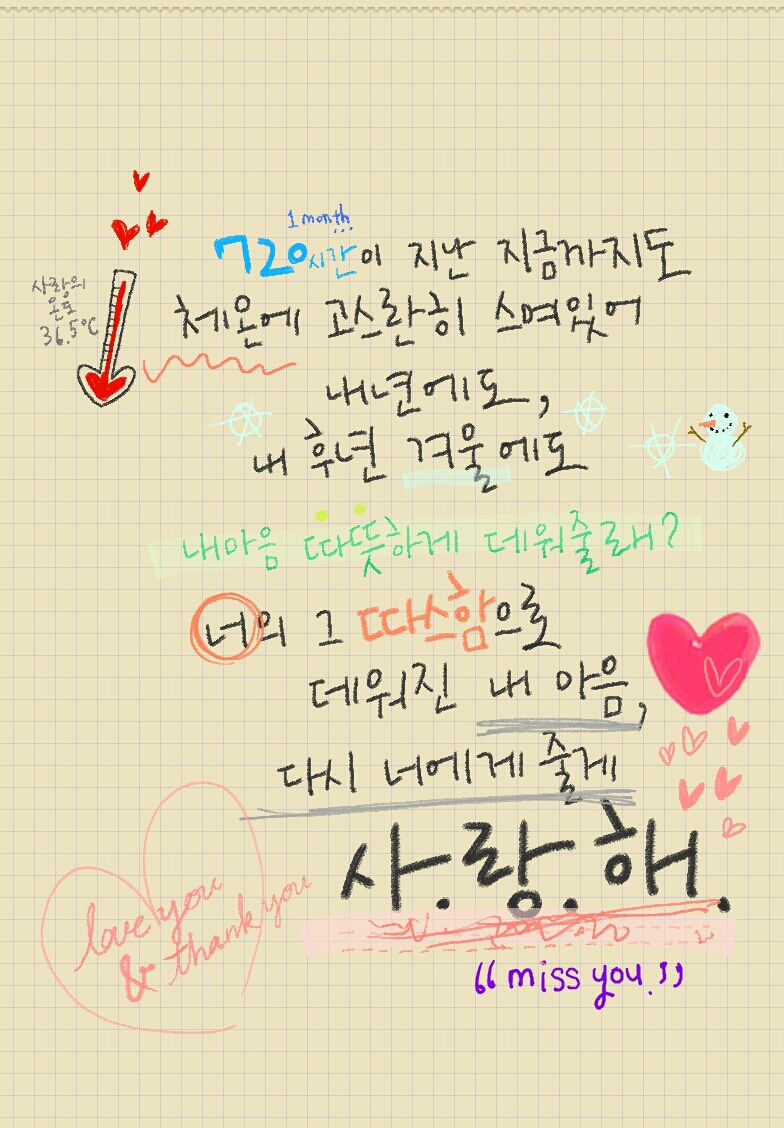 1 month
720시간이 지난 지금까지도
사랑의
온도
36.5℃
체온에 고스란히 스며있어
내년에도,
내 후년 겨울에도
내마음 따뜻하게 데워줄래?
너의 그 따스함으로
데워진 내 마음,
다시 너에게 줄게
사.랑.해.
love you
& thank you
“miss you.”